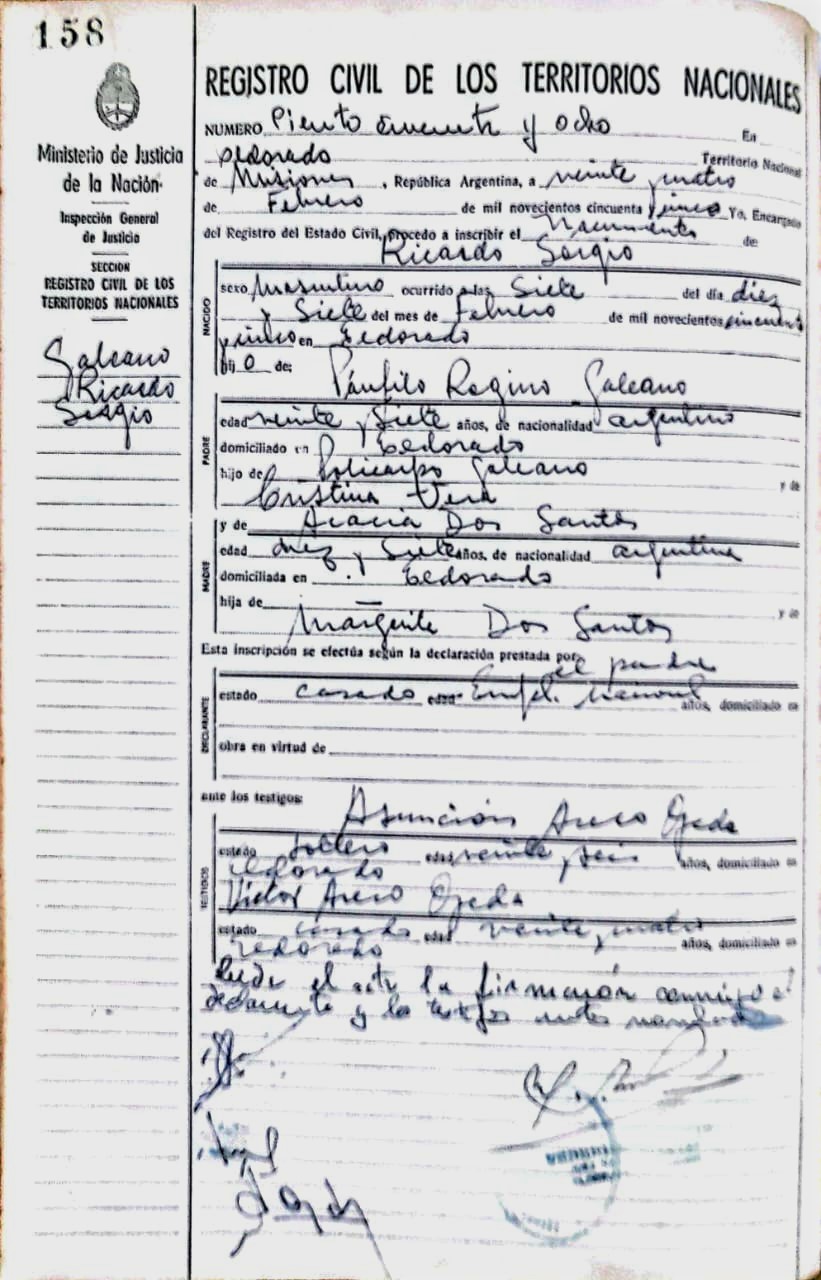 158
Ministerio de Justicia
de la Nación
Inspección General
de Justicia
SECCION
REGISTRO CIVIL DE LOS
TERRITORIOS NACIONALES
Galeano
Ricardo
Sergio
REGISTRO CIVIL DE LOS TERRITORIOS NACIONALES
NUMERO Ciento cincuenta y ocho En
Eldorado Territorio Nacional
de Misiones, República Argentina, a veinte y cuatro
de Febrero de mil novecientos cincuenta y cinco Yo, Encargado
del Registro del Estado Civil, procedo a inscribir el Nacimiento de:
Ricardo Sergio
NACIDO
sexo Masculino ocurrido a las Siete del día diez
y Siete del mes de Febrero de mil novecientos cincuenta
y cinco en Eldorado
hijo de:
Pánfilo Regino Galeano
PADRE
edad veinte y Siete años, de nacionalidad argentino
domiciliado en Eldorado
hijo de Policarpo Galeano y de
Cristina Vera
y de Acacia Dos Santos
MADRE
edad diez y Siete años, de nacionalidad argentina
domiciliada en Eldorado
hija de y de
Margarita Dos Santos
Esta inscripción se efectúa según la declaración prestada por
el padre
DECLARANTE
estado casado edad Empl. Nacional años, domiciliado en
obra en virtud de
ante los testigos:
Asunción Arero Ojeda
TESTIGOS
estado soltero edad veinte y seis años, domiciliado en
Eldorado
Victor Arero Ojeda
estado casado edad veinte y cuatro años, domiciliado en
Eldorado
el acta la firmaron conmigo el
declarante y los testigos antes nombrados